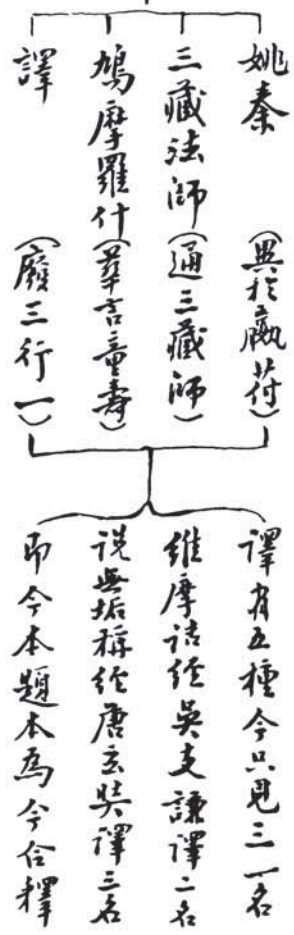 姚秦（異於嬴苻）
三藏法師（通三藏師）
鳩摩羅什（華言童壽）
譯（廢三行一）
譯有五種今只見三一名
維摩詰經吳支謙譯二名
說無垢稱經唐玄奘譯三名
即今本題本為今合釋